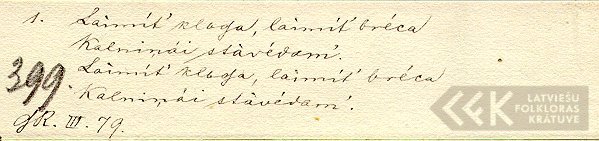 1. Laimit' kliga, laimit' brēca
Kalniņâi stâvēdam'.
399. Laimit' kliga, laimit' brēca
Kalniņâi stâvēdam'.
R. III. 79.
LATVIEŠU
FOLKLORAS
KRĀTUVE